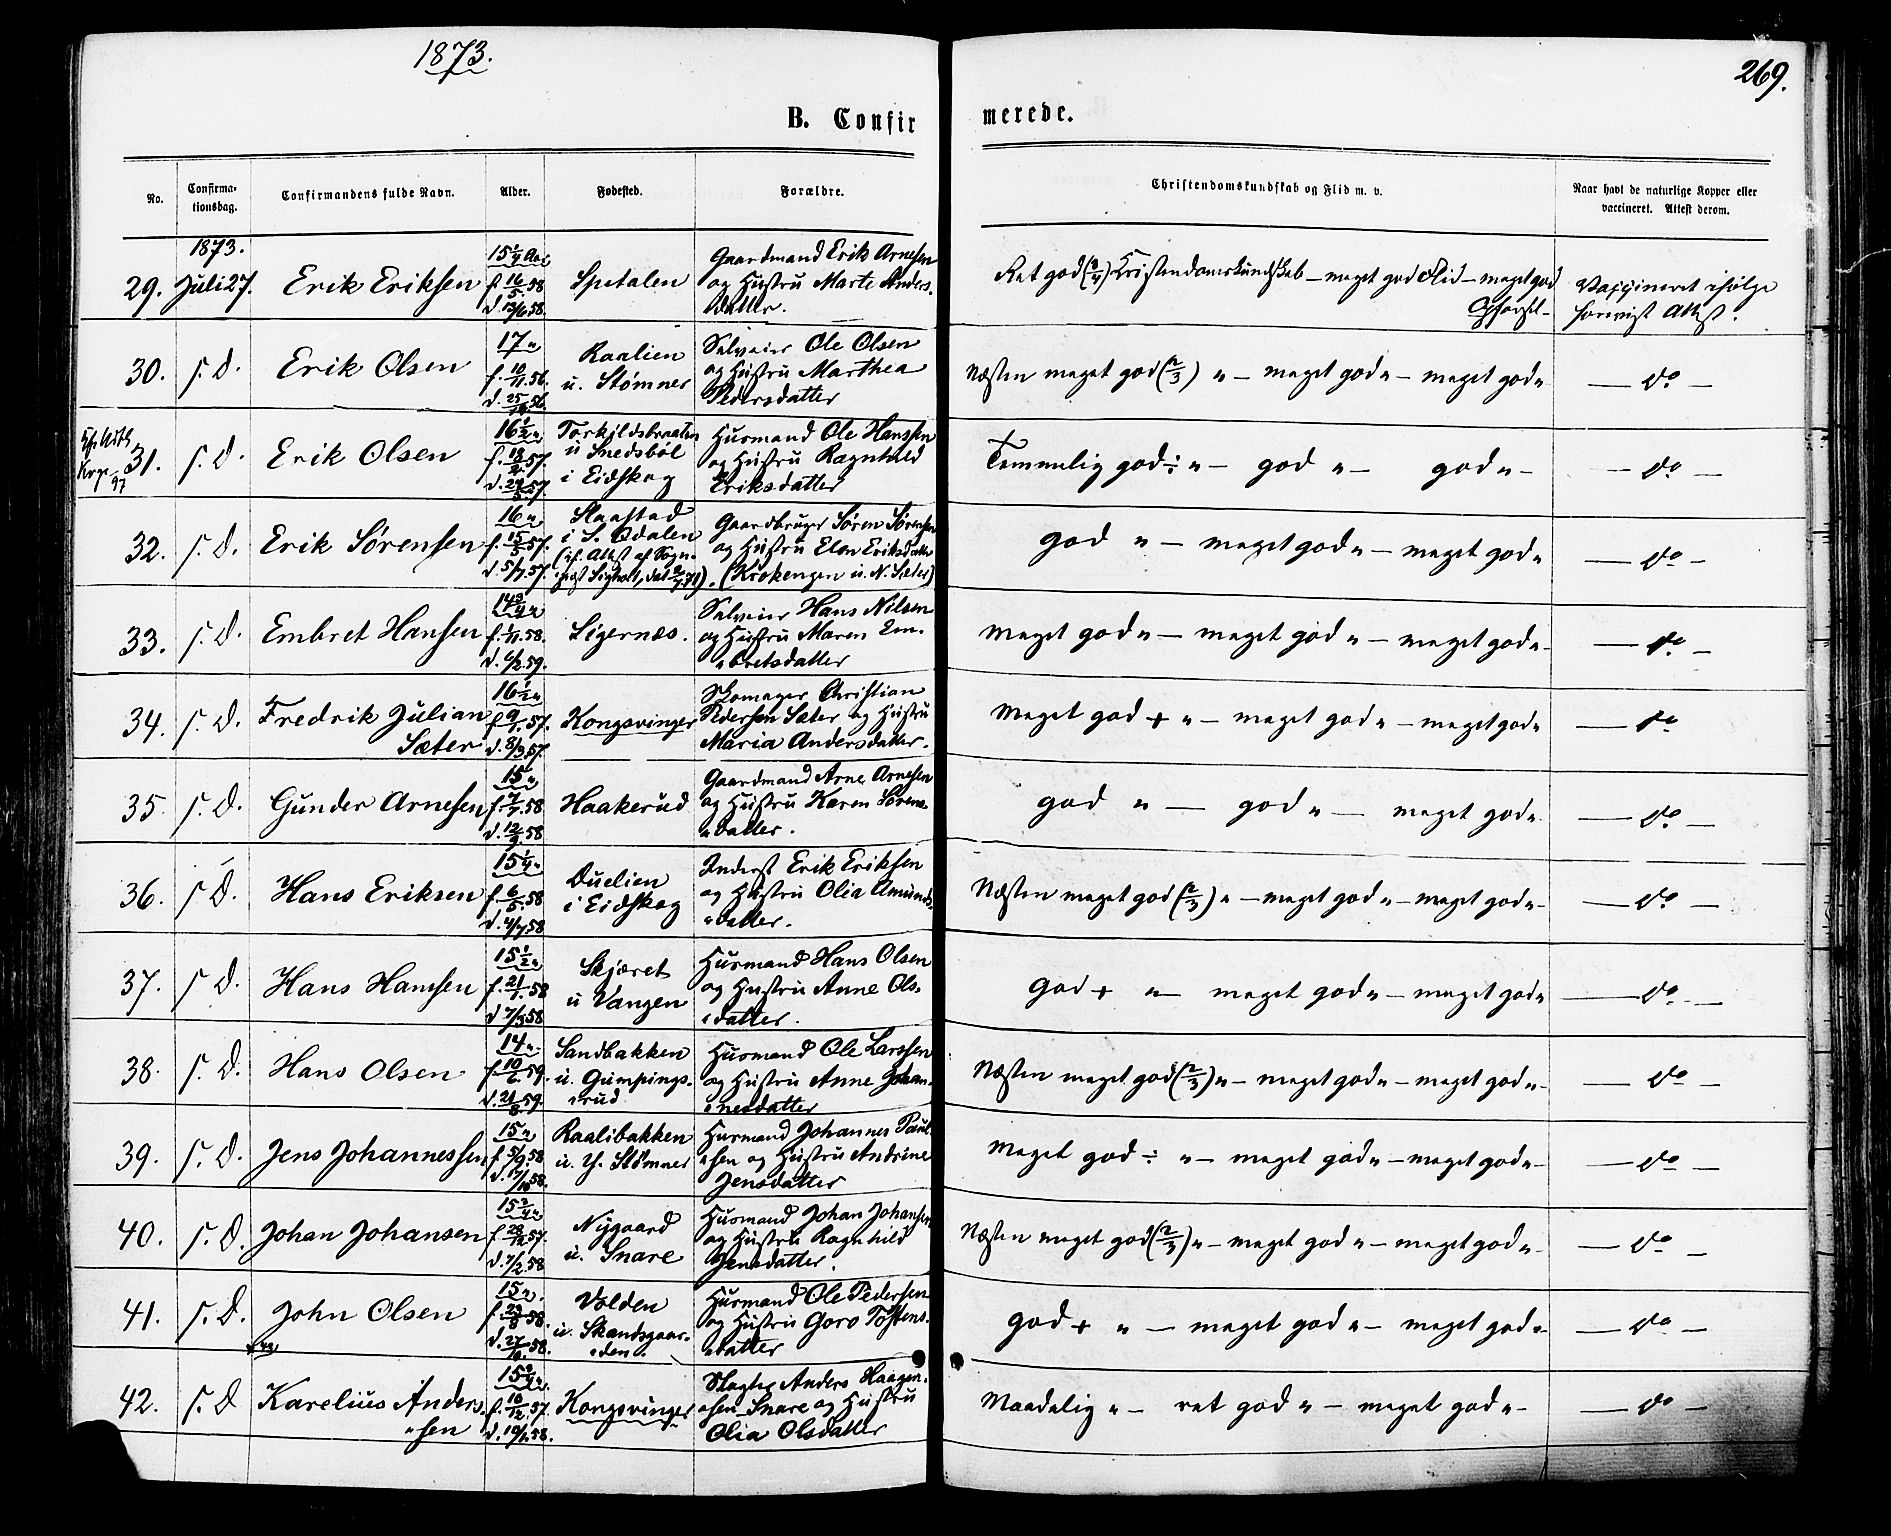 1873.
269.
B. Confirmerede.
No.
Confirmationsdag.
Confirmandens fulde Navn.
Alder.
Fødested.
Forældre.
Christendomskundskab og Flid m. v.
Naar havt de naturlige Kopper eller vaccineret. Attest derom.
1873.
29. Juli 27. Erik Eriksen
15 1/4 Aar
f. 16/5 58
d. 13/6 58.
Spetalen
Gaardmand Erik Arnesen
og Hustru Marte Anders-
datter.
Ret god (3/4) Kristendomskundskab – meget god Flid – meget god
Opførsel –
Vaccineret ifølge
forevist Attest.
30. s. D. Erik Olsen
17 "
f. 10/11 56.
d. 25/12 56.
Raalien
u. Stømner
Selveier Ole Olsen
og Hustru Marthea
Pedersdatter
Næsten meget god (2/3) " – meget god " – meget god "
— do —
31. s. D. Erik Olsen
16 1/2 "
f. 18/2 57.
d. 57.
Torkildsbraaten
u Snedsbøl
i Eidskog
Husmand Ole Hanssen
og Hustru Ragnhild
Eriksdatter
Temmelig god ÷ " – god " – god " –
— do —
32. s. D. Erik Sørensen
16 "
f. 15/5 57.
d. 5/7 57.
Slaastad
i S. Odalen
(if. Attest af Sogn-
Gaardbruger Søren Sørensen
og Hustru Elen Eriksdatter
(Krokengen u. N. Sæter)
god " – meget god " – meget god "
— do —
33. s. D. Embret Hansen
14 3/4 "
f. 1/11 58.
d. 6/2 59.
Sigernæs.
Selveier Hans Nilsen
og Hustru Maren Em-
bretsdatter
Meget god " – meget god " – meget god " –
— do —
34. s. D. Fredrik Julian
Sæter
16 1/2 "
f. 9/1 57.
d. 8/3 57.
Kongsvinger
Skomager Christian
Pedersen Sæter og Hustru
Maria Andersdatter.
Meget god + " – meget god " – meget god "
— do
35. s. D. Gunder Arnesen
15 "
f. 7/7 58
d. 58
Haakerud
Gaardmand Arne Arnesen
og Hustru Karen Sørens-
datter.
god " — god " — meget god "
— do —
36. s D. Hans Eriksen
15 1/4 "
f. 6/5 58
d. 4/7 58
Duelien
i Eidskog
Inderst Erik Eriksen
og Hustru Olia Amunds-
datter.
Næsten meget god (2/3) " – meget god " – meget god " –
— do —
37. s D. Hans Hansen
15 1/2 "
f. 21/1 58
d 7/3 58
Skjæret
u Vangen
Husmand Hans Olsen
og Hustru Anne Ols-
datter.
God + " – meget god " – meget god "
— do —
38. s. D. Hans Olsen
14 "
f. 10/6 59.
d. 21/8 59.
Sandbakken
u. Gumpings-
rud
Husmand Ole Larssen
og Hustru Anne Johan-
nesdatter
Næsten meget god (2/3) " – meget god " – meget god " –
— do —
39. s. D. Jens Johannessen
15 "
f 5/9 58
d. 17/10 58.
Raalibakken
u. Y. Stømner
Husmand Johannes Paul-
sen og Hustru Andrine
Jensdatter
Meget god ÷ " – meget god " – meget god " –
— do —
40. s. D. Johan Johansen
f. 28/12 57.
d. 7/2 58
Nygaard
u. Snare
Husmand Johan Johansen
og Hustru Ragnhild
Jensdatter.
Næsten meget god (2/3) " – meget god " – meget god " –
— do —
41. s. D. John Olsen
15 "
f 58.
d. 58.
Volden
u. Skandsgaar-
den.
Husmand Ole Pedersen
og Hustru Goro Tostens-
datter
God + " – meget god " – meget god " –
— do —
42. s. D Karelius Anders-
sen
f. 10/12 57.
d. 10/1 58.
Kongsvinger
Slagter Anders Haagen-
sen Snare og Hustru
Olia Olsdatter
Maadelig " – ret god " – meget god " –
— do —